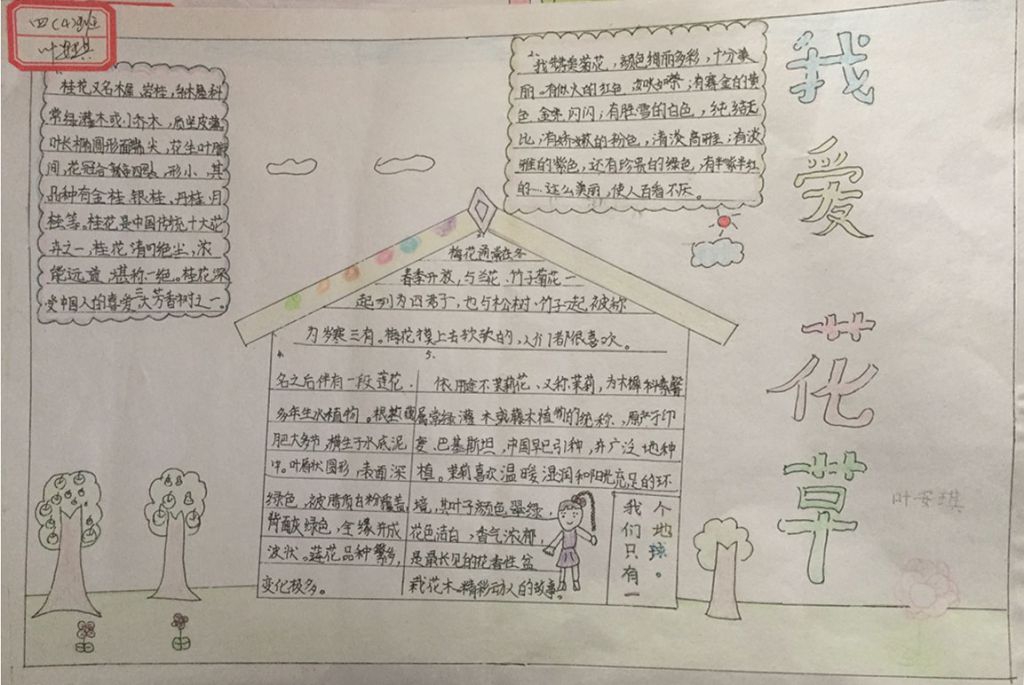 四(4)班
叶安琪
我爱花草
叶安琪
1.
桂花又名木樨、岩桂,系木犀科
常绿灌木或小乔木,质坚皮薄,
叶长椭圆形面端尖,花生叶腋
间,花冠合瓣四裂,形小,其
品种有金桂、银桂、丹桂、月
桂等。桂花是中国传统十大花
卉之一,桂花清可绝尘,浓
能远溢,堪称一绝。桂花深
受中国人的喜爱三大芳香树之一。
2.
我特喜爱菊花,颜色绚丽多彩,十分美
丽。有似火的红色,
有赛金的黄
色,金光闪闪;有胜雪的白色,纯洁无
比;有娇嫩的粉色,清淡高雅;有淡
雅的紫色,还有珍贵的绿色,有半紫半红
的……这么美丽,使人百看不厌。
3.
梅花通常在冬
春季开放,与兰花、竹子菊花一
起列为四君子,也与松树、竹子一起被称
为岁寒三有。梅花摸上去软软的,人们都很喜欢。
4.
名之后伴有一段莲花,
多年生水植物。根茎
肥大多节,横生于水底泥
中。叶盾状圆形,表面深
绿色,被腊质白粉覆盖
背面灰绿色,全缘并成
波状。莲花品种繁多,
变化极多。
5.
依用途不茉莉花、又称茉莉,为木樨科素馨
属常绿灌木或藤木植物的统称,原产于印
度、巴基斯坦,中国早已引种,并广泛地种
植。茉莉喜欢温暖湿润和阳光充足的环
境,其叶子颜色翠绿,
花色洁白,香气浓郁,
是最长见的花香性盆
栽花木。精彩动人的故事。
我们只有一
个地球。